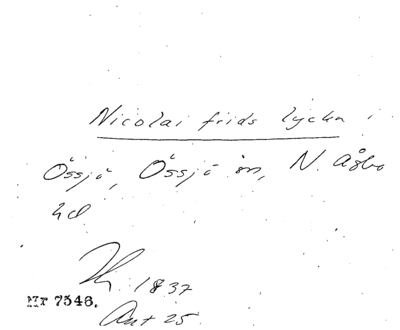 Nicolai frids lycka i
Össjö, Össjö sn, N. Åsbo
hd
1837
Mr 7546.
Aut 25